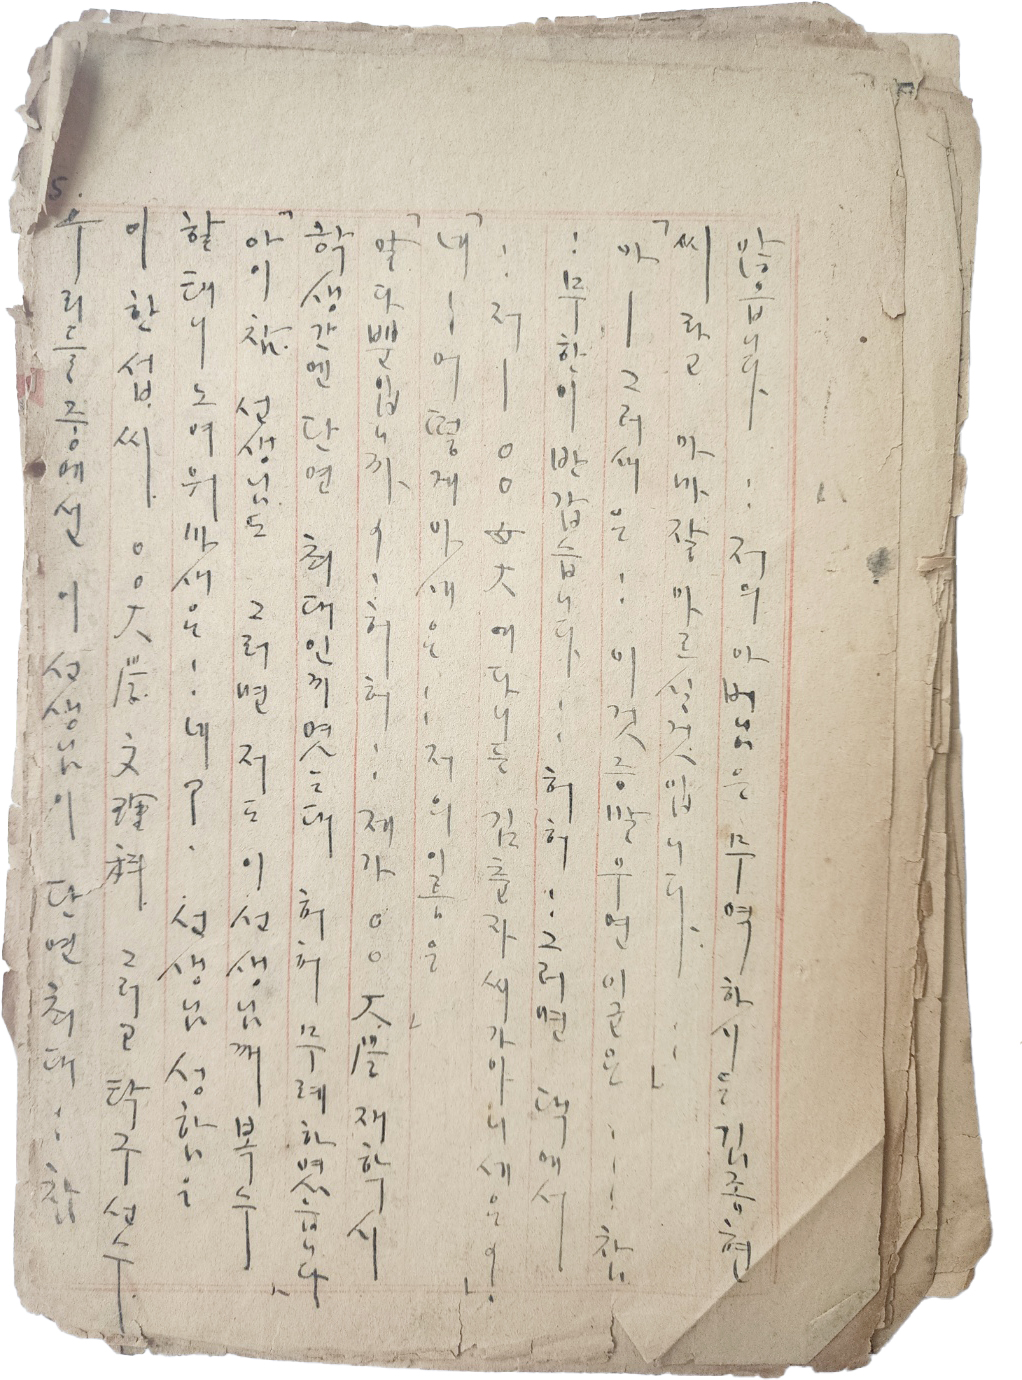 않습니다 : 저의 아버님은 무역하시든 김종현
씨라고 아마 잘 아르실것입니다. :
「아ㅣ그러세요 : 이것 증말 우연이군요 : : 참
: 무한이 반갑습니다 : : 허허 : 그러면 댁에서
: 저ㅣ〇〇女大에 다니든 김춘자씨가 아니세요 !
「네 : 어떻게 아세요 : : 저의 이름은
「알다뿐입니까 ! : 허허 : 제가 〇〇大農 재학시
학생간엔 단연 최대인끼였는대 허허 무례하였습니다
「아이참 선생님도 그러면 저도 이선생님께 복수
할태니 노여워 마세요 : 네? 선생님 성함은
이한섭씨 〇〇大農 文理科 그리고 탁구선수
우리들중에선 이선생님이 단연최대 : 참
5.